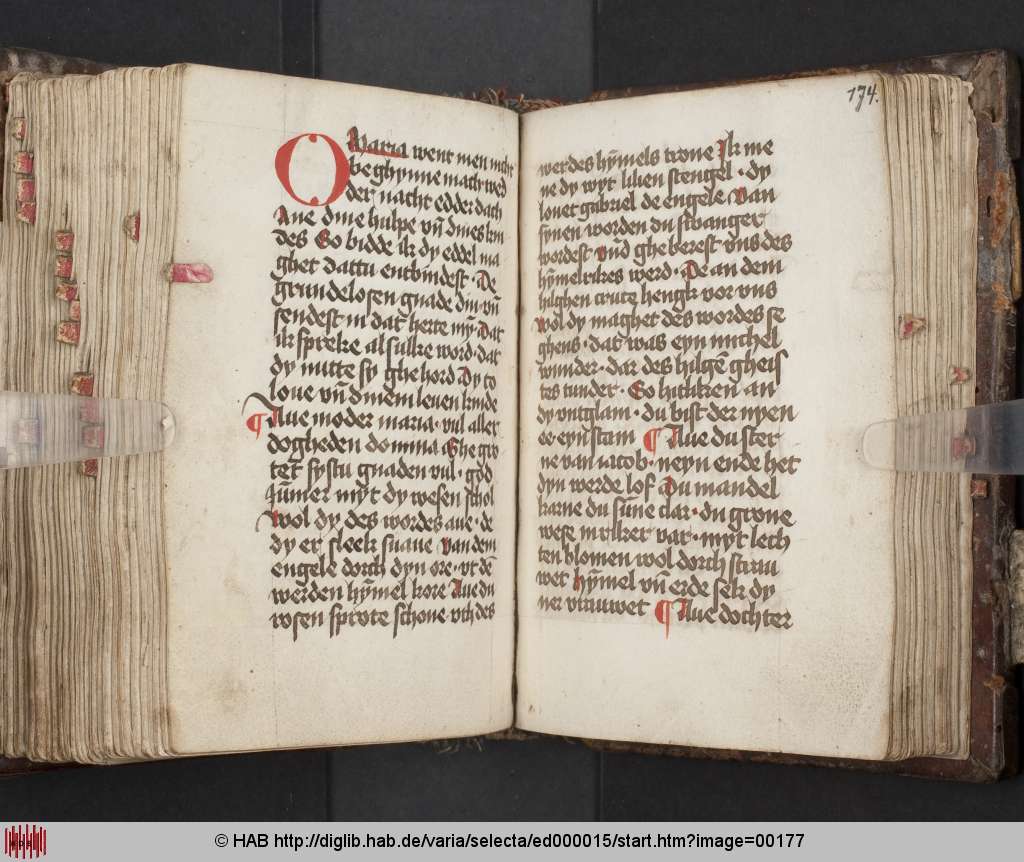 O Maria went men nicht
beghynne mach wed
der nacht edder dach
Ane dine hulpe vn̄ dines kin
des So bidde ik dy eddel ma
ghet dattu entbindest · De
grundelosen gnade din · vn̄
sendest in dat herte mȳ · dat
ik spreke al sulke word · dat
dy nutte sy ghe hord Dy to
loue vn̄ dinem leuen kinde
¶ Aue moder maria · vul aller
dogheden domina Ghe gro
tet systu gnaden vul · god
ȳmer myt dy wesen schol
wol dy des wordes aue · de
dy er sleek suaue Van dem
engele dorch dyn ore · vt dē
werden hȳmel kore Aue du
rosen sprote schone · vth des
174.
werdes hȳmels trone Ik me
ne dy wyt lilien stengel · dy
louet gabriel de engele Van
synen worden du swanger
wordest vnd ghe berest vns des
hȳmelrikes werd · De an dem
hilghen cruce hengk vor vns
Wol dy maghet des wordes se
ghens · dat was eyn michel
wunder · dar des hilgē gheis
tes tunder · So hitliken an
dy vntglam · du bist der nyen
ee eyn stam ¶ Aue du ster
ne van iacob · neyn ende het
dyn werde lof Du mandel
karne du sūne clar · du grone
wese mylker var · myt lech
ten blomen wol dorch strau
wet hȳmel vn̄ erde sek dy
ner vrauwet ¶ Aue dochter
© HAB http://diglib.hab.de/varia/selecta/ed000015/start.htm?image=00177